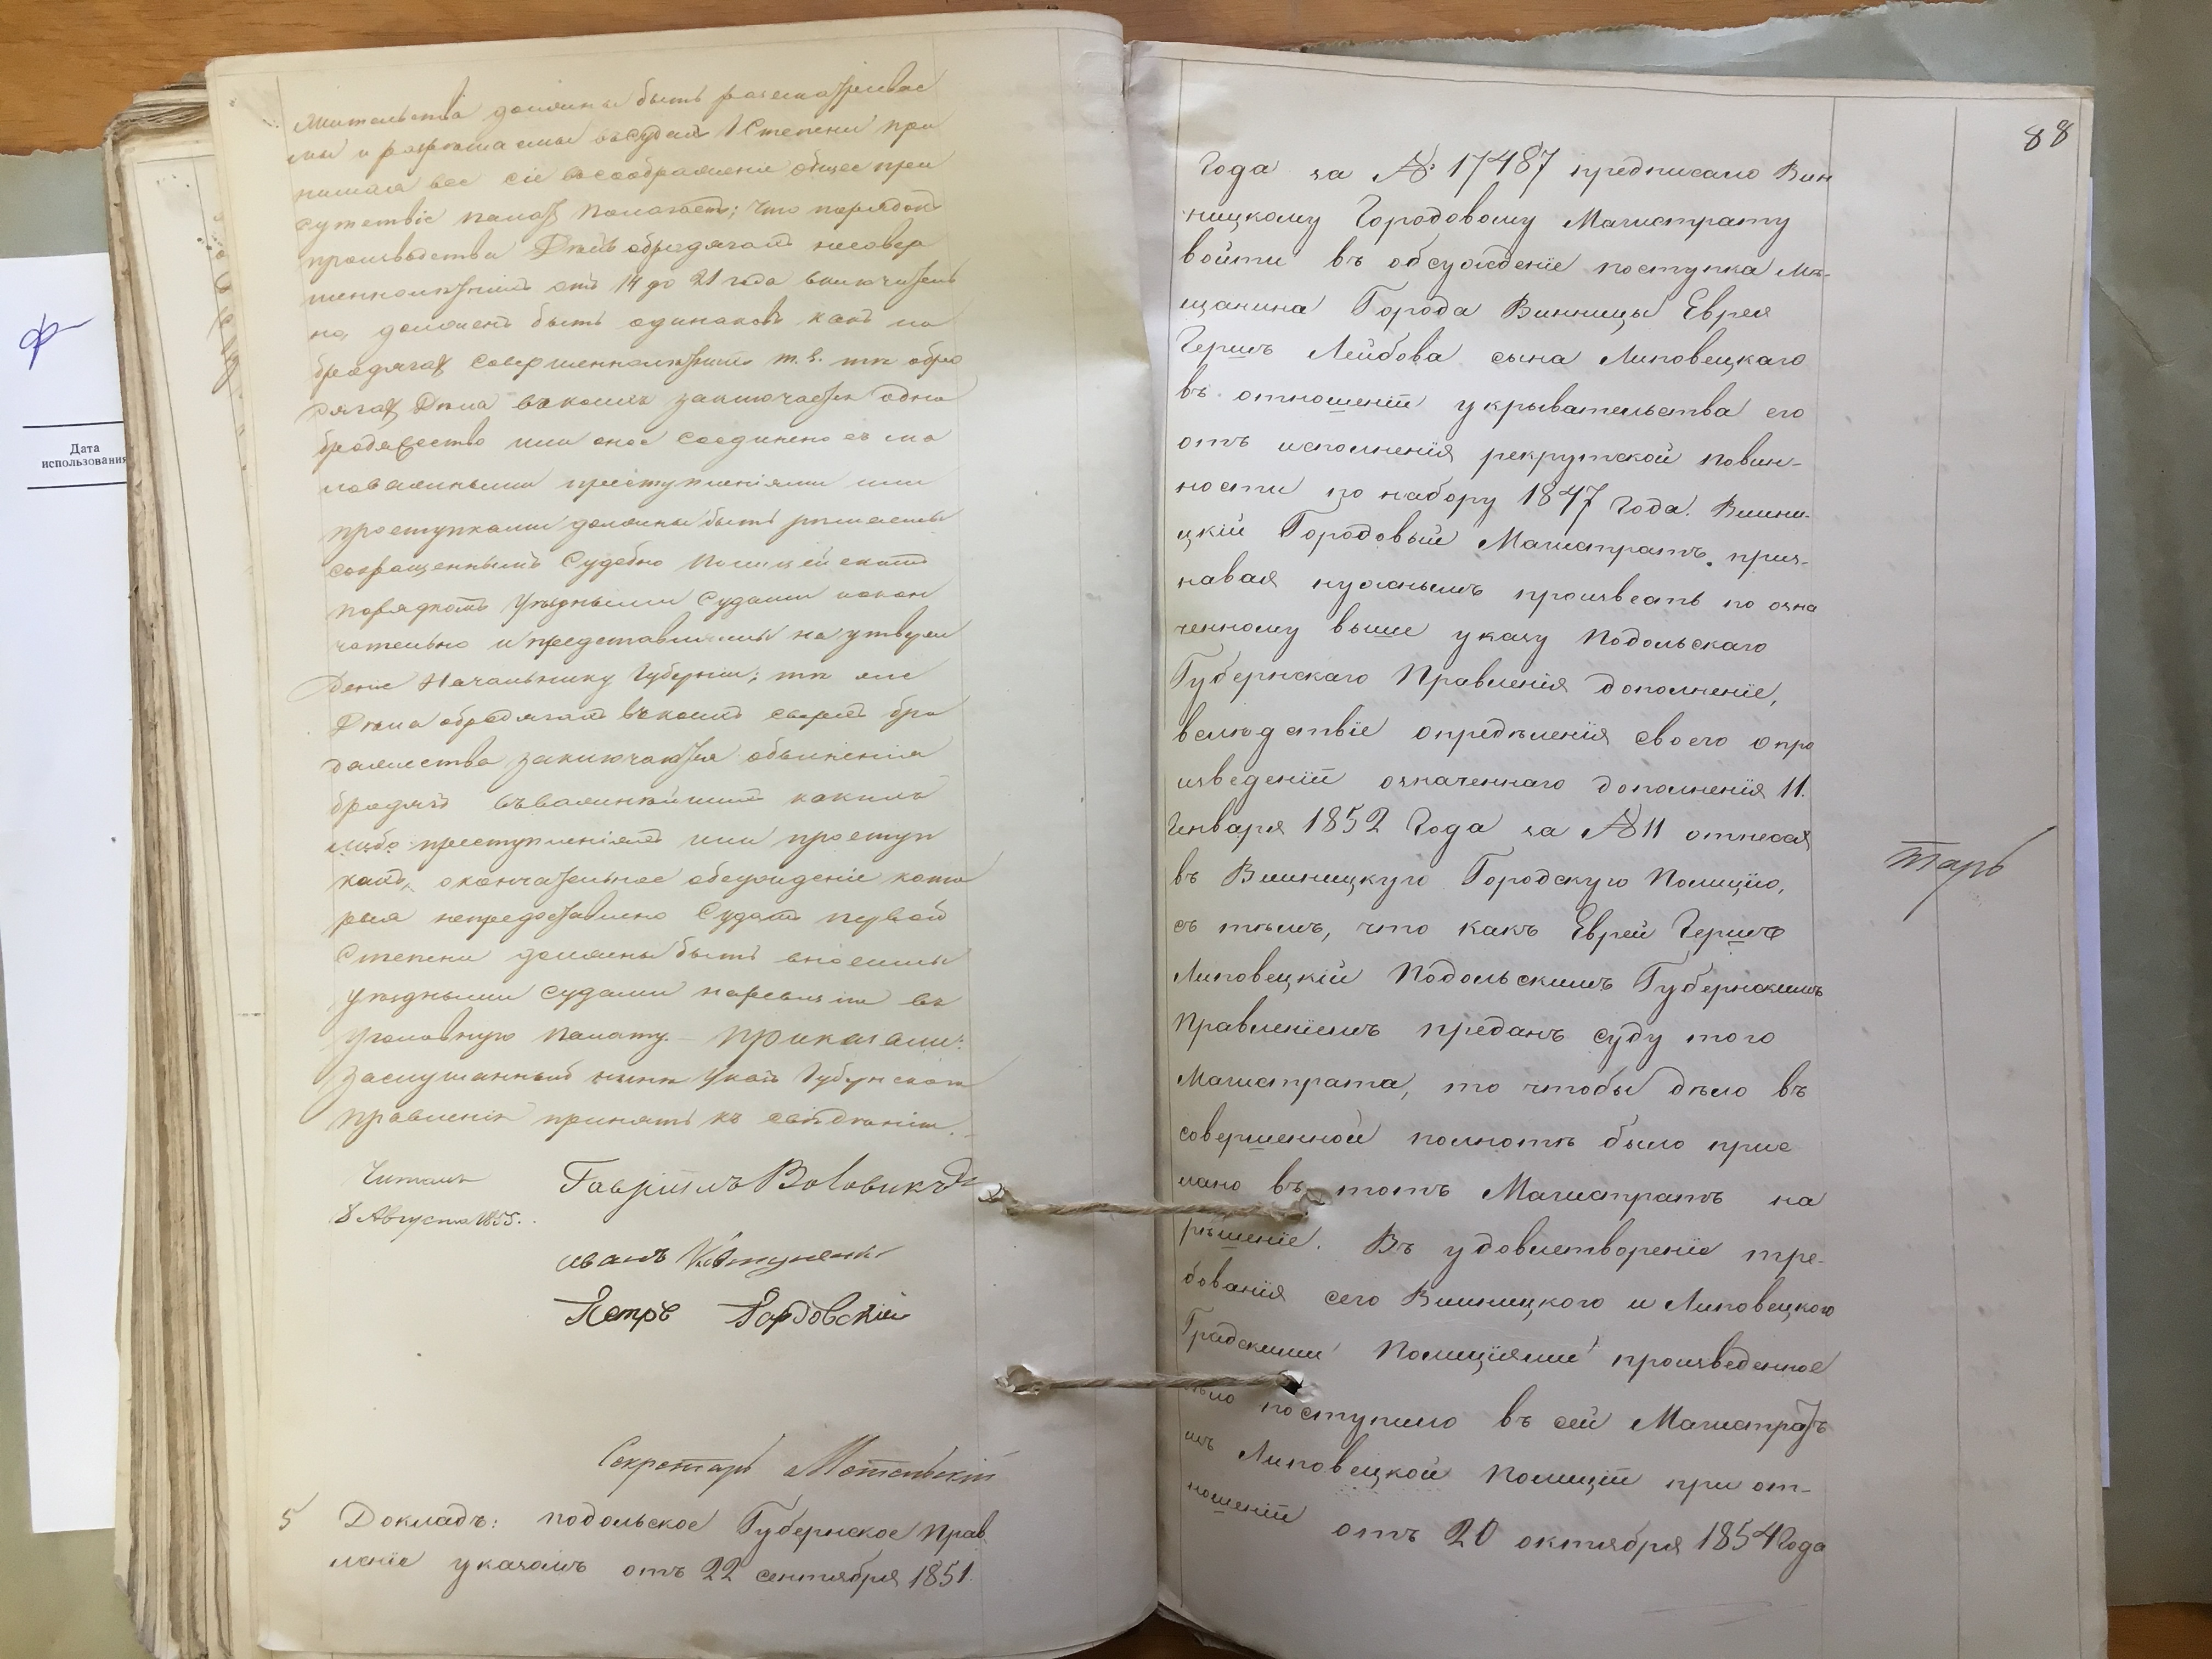 жительства должны быть разсматривае
мы и разрѣшаемы въ судахъ 1 Степени при
нимая все сіе въ соображеніе общее при
сутствіе палатъ полагаетъ; что порядокъ
производства Дѣлъ обродягахъ несовер
шеннолѣтнихъ отъ 14 до 21 года включитель
но, долженъ быть одинаковъ какъ и о
бродягахъ совершеннолѣтнихъ т. е. тѣ обро
дягахъ Дѣла въ коихъ заключается одно
бродяжество или оное соединено съ ма
ловажными преступленіями или
проступками должны быть решаемы
сокращеннымъ Судебно Полицейскимъ
порядкомъ Уѣздными Судами окон
чательно и представляемы на утверж
деніе Начальнику Губерніи; тѣ же
Дѣла обродягахъ въ коихъ сверхъ бро
дяжества заключаются обвиненія
бродягъ въ важнѣйшихъ какихъ
либо преступленіяхъ или проступ
кахъ, окончательное обсужденіе кото
рыхъ непредоставлено Судамъ первой
Степени должны быть вносимы
уѣздными судами на ревизію въ
уголовную Палату. – Приказали:
заслушанный нынѣ Указъ Губернскаго
правленія принять къ свѣденію.
Читалъ
8 Августа 1855.
Гавріилъ
Иванъ
Петръ
Секретарь
5 Докладъ: Подольское Губернское Прав
леніе указомъ отъ 22 сентября 1851
88
Года за № 17487 предписало Вин
ницкому Городовому Магистрату
войти въ обсужденіе поступка мѣ-
щанина Города Винницы Еврея
Гершъ Лейбова сына Липовецкаго
въ отношеніи укрывательства его
отъ исполненія рекрутской повин-
ности по набору 1847 Года. Винни-
цкій Городовый Магистратъ, приз-
навая нужнымъ произвесть по озна
ченному выше указу Подольскаго
Губернскаго Правленія дополненіе,
вслѣдствіе опредѣленія своего о про
изведеніи означеннаго дополненія 11.
Генваря 1852 Года за № 11 отнесся
въ Винницкую Городскую Полицію,
съ тѣмъ, что какъ Еврей Гершъ
Липовецкій Подольскимъ Губернскимъ
Правленіемъ преданъ суду того
Магистрата, то чтобы дѣло въ
совершенной полнотѣ было прис
лано въ тотъ Магистратъ на
рѣшеніе. Въ удовлетвореніе тре-
бованія сего Винницкого и Липовецкого
Градскими Полиціями произведенное
дѣло поступило въ сей Магистратъ
изъ Липовецкой Полиціи при от-
ношеніи отъ 20 октября 1854 Года
тарь